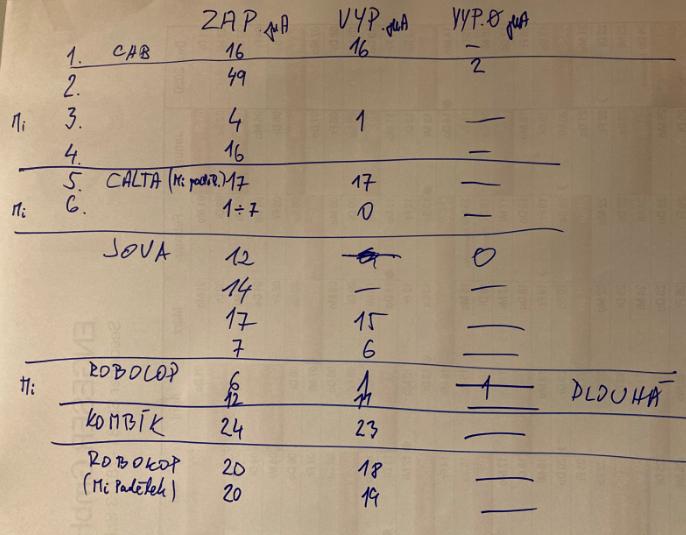 ZAP. μA VYP. μA VYP. Ø μA
1. CAB 16 16 —
2. 49 2
Mi 3. 4 1 —
4. 16 —
5. CALTA (Mi paděl.) 17 17 —
Mi 6. 1÷7 0 —
JOVA 12 0
14 — —
17 15 —
7 6 —
Mi ROBOCOP 6 1 1 DLOUHÁ
12 11 —
KOMBÍK 24 23 —
ROBOKOP 20 18 —
(Mi Padělek) 20 19 —